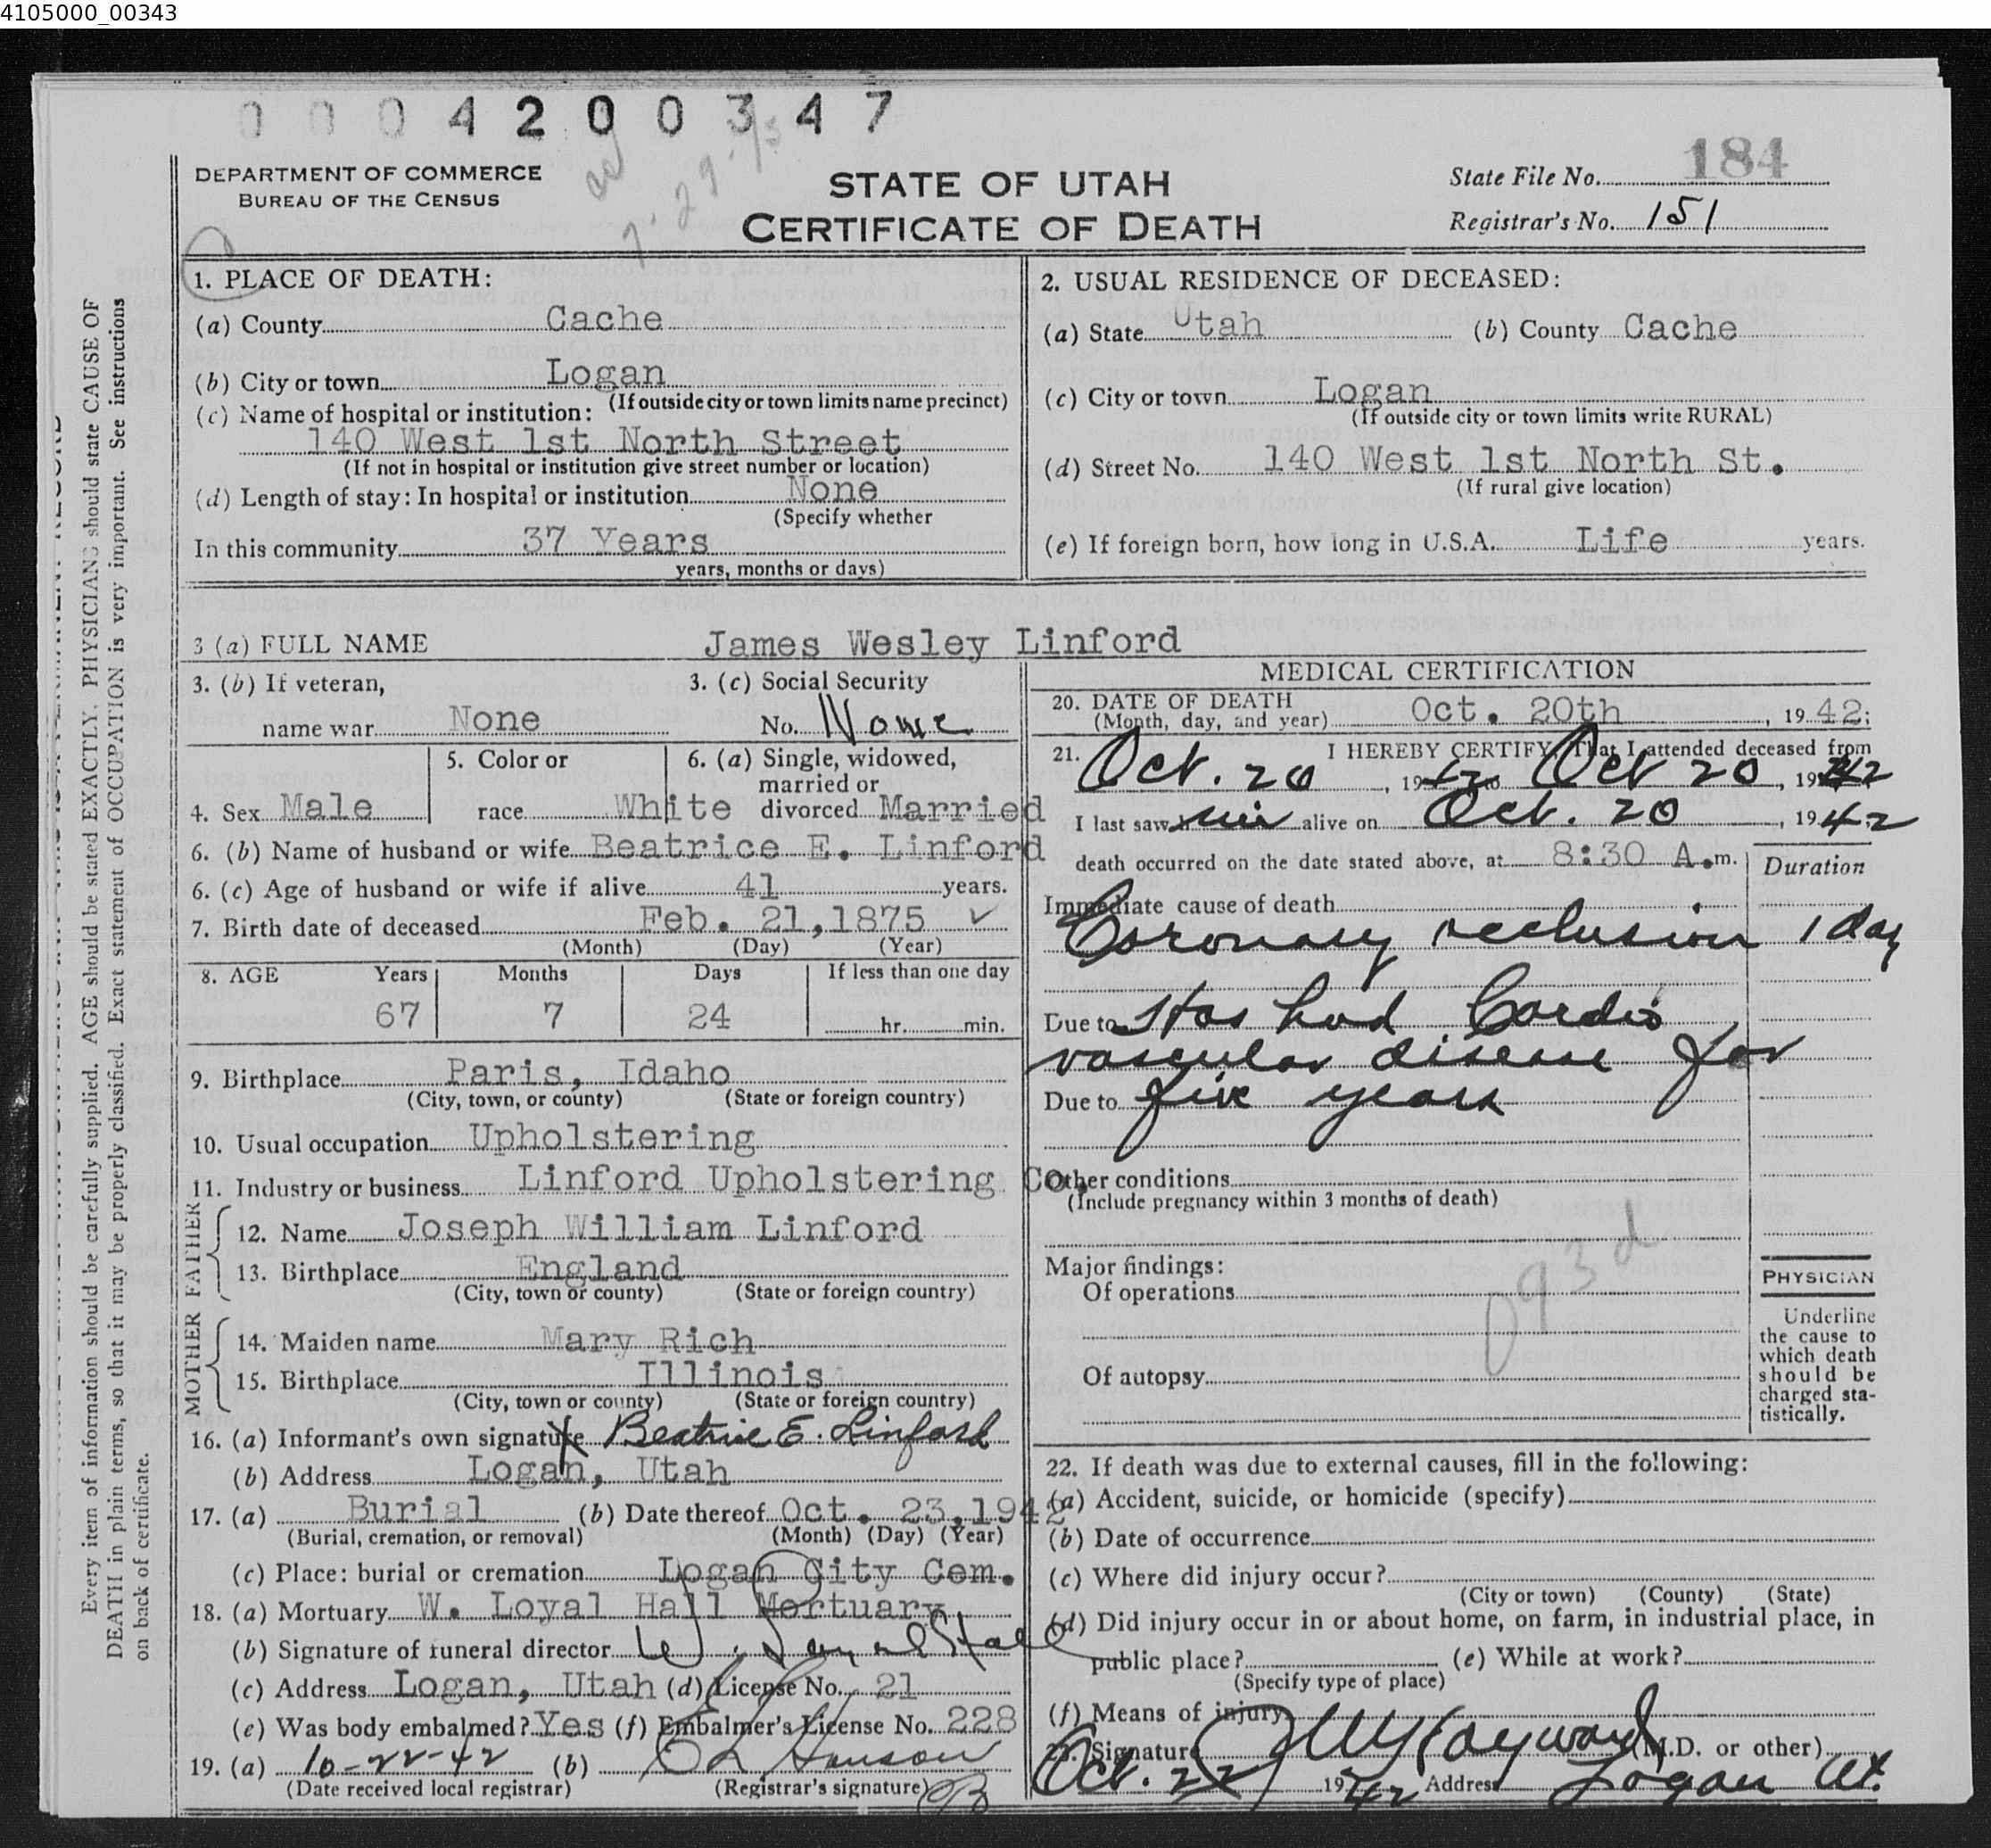 4105000_00343
0004200347
DEPARTMENT OF COMMERCE
BUREAU OF THE CENSUS
STATE OF UTAH
CERTIFICATE OF DEATH
State File No. 184
Registrar's No. 151
Every item of information should be carefully supplied. AGE should be stated EXACTLY. PHYSICIANS should state CAUSE OF
DEATH in plain terms, so that it may be properly classified. Exact statement of OCCUPATION is very important. See instructions
on back of certificate.
1. PLACE OF DEATH:
(a) County Cache
(b) City or town Logan
(If outside city or town limits name precinct)
(c) Name of hospital or institution:
140 West 1st North Street
(If not in hospital or institution give street number or location)
(d) Length of stay: In hospital or institution None
(Specify whether
In this community 37 Years
years, months or days)
2. USUAL RESIDENCE OF DECEASED:
(a) State Utah (b) County Cache
(c) City or town Logan
(If outside city or town limits write RURAL)
(d) Street No. 140 West 1st North St.
(If rural give location)
(e) If foreign born, how long in U.S.A. Life years.
3 (a) FULL NAME James Wesley Linford
3. (b) If veteran, 3. (c) Social Security
name war None No. None
5. Color or 6. (a) Single, widowed,
married or
4. Sex Male race White divorced Married
6. (b) Name of husband or wife Beatrice E. Linford
6. (c) Age of husband or wife if alive 41 years.
7. Birth date of deceased Feb. 21, 1875 ✓
(Month) (Day) (Year)
8. AGE Years Months Days If less than one day
67 7 24 hr. min.
9. Birthplace Paris, Idaho
(City, town, or county) (State or foreign country)
10. Usual occupation Upholstering
11. Industry or business Linford Upholstering Co.
FATHER
12. Name Joseph William Linford
13. Birthplace England
(City, town or county) (State or foreign country)
MOTHER
14. Maiden name Mary Rich
15. Birthplace Illinois
(City, town or county) (State or foreign country)
16. (a) Informant's own signature X Beatrice E. Linford
(b) Address Logan, Utah
17. (a) Burial (b) Date thereof Oct. 23, 1942
(Burial, cremation, or removal) (Month) (Day) (Year)
(c) Place: burial or cremation Logan City Cem.
18. (a) Mortuary W. Loyal Hall Mortuary
(b) Signature of funeral director W. Loyal Hall
(c) Address Logan, Utah (d) License No. 21
(e) Was body embalmed? Yes (f) Embalmer's License No. 228
19. (a) 10-22-42 (b) Hanson
(Date received local registrar) (Registrar's signature)
MEDICAL CERTIFICATION
20. DATE OF DEATH
(Month, day, and year) Oct. 20th, 1942;
21. I HEREBY CERTIFY, That I attended deceased from
Oct. 20, 1942 to Oct 20, 1942
I last saw him alive on Oct. 20, 1942
death occurred on the date stated above, at 8:30 A.m. Duration
Immediate cause of death
Coronary occlusion 1 day
Due to Has had Cardio
vascular disease for
Due to five years
Other conditions
(Include pregnancy within 3 months of death)
Major findings:
Of operations
093d
Of autopsy
PHYSICIAN
Underline
the cause to
which death
should be
charged sta-
tistically.
22. If death was due to external causes, fill in the following:
(a) Accident, suicide, or homicide (specify)
(b) Date of occurrence
(c) Where did injury occur?
(City or town) (County) (State)
(d) Did injury occur in or about home, on farm, in industrial place, in
public place? (e) While at work?
(Specify type of place)
(f) Means of injury
23. Signature Hayward (M.D. or other)
Oct. 22 1942 Address Logan Ut.